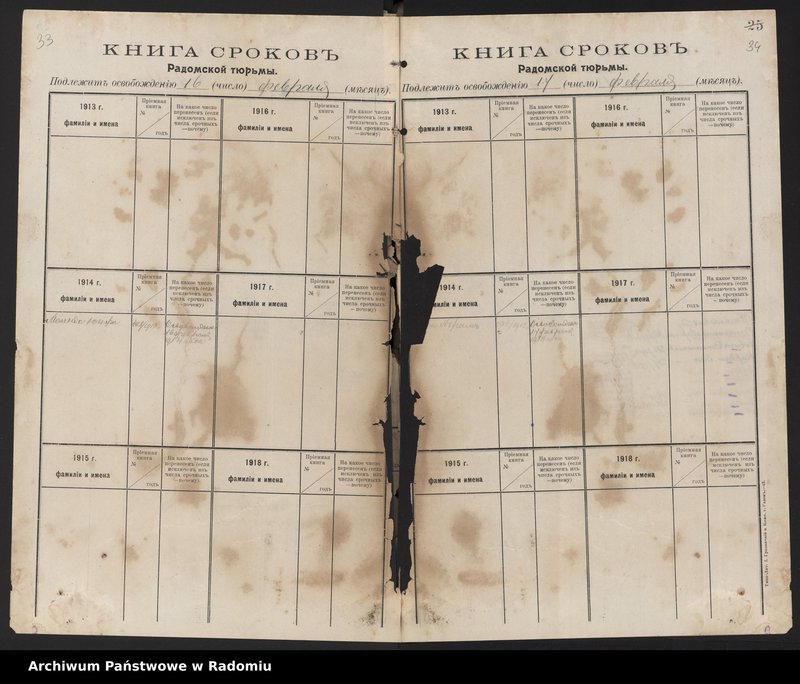 33
КНИГА СРОКОВЪ
Радомской тюрьмы.
Подлежитъ освобожденію 16 (число) февраля (мѣсяцъ).
1913 г.
фамиліи и имена
Пріемная книга
№
годъ
На какое число перенесенъ (если исключенъ изъ числа срочныхъ —почему)
1916 г.
фамиліи и имена
Пріемная книга
№
годъ
На какое число перенесенъ (если исключенъ изъ числа срочныхъ —почему)
1914 г.
фамиліи и имена
Пріемная книга
№
годъ
На какое число перенесенъ (если исключенъ изъ числа срочныхъ —почему)
1917 г.
фамиліи и имена
Пріемная книга
№
годъ
На какое число перенесенъ (если исключенъ изъ числа срочныхъ —почему)
1915 г.
фамиліи и имена
Пріемная книга
№
годъ
На какое число перенесенъ (если исключенъ изъ числа срочныхъ —почему)
1918 г.
фамиліи и имена
Пріемная книга
№
годъ
На какое число перенесенъ (если исключенъ изъ числа срочныхъ —почему)
25
34
КНИГА СРОКОВЪ
Радомской тюрьмы.
Подлежитъ освобожденію 17 (число) февраля (мѣсяцъ).
1913 г.
фамиліи и имена
Пріемная книга
№
годъ
На какое число перенесенъ (если исключенъ изъ числа срочныхъ —почему)
1916 г.
фамиліи и имена
Пріемная книга
№
годъ
На какое число перенесенъ (если исключенъ изъ числа срочныхъ —почему)
1914 г.
и имена
Пріемная книга
№
годъ
На какое число перенесенъ (если исключенъ изъ числа срочныхъ —почему)
1917 г.
фамиліи и имена
Пріемная книга
№
годъ
На какое число перенесенъ (если исключенъ изъ числа срочныхъ —почему)
1915 г.
фамиліи и имена
Пріемная книга
№
годъ
На какое число перенесенъ (если исключенъ изъ числа срочныхъ —почему)
1918 г.
фамиліи и имена
Пріемная книга
№
годъ
На какое число перенесенъ (если исключенъ изъ числа срочныхъ —почему)
Archiwum Państwowe w Radomiu